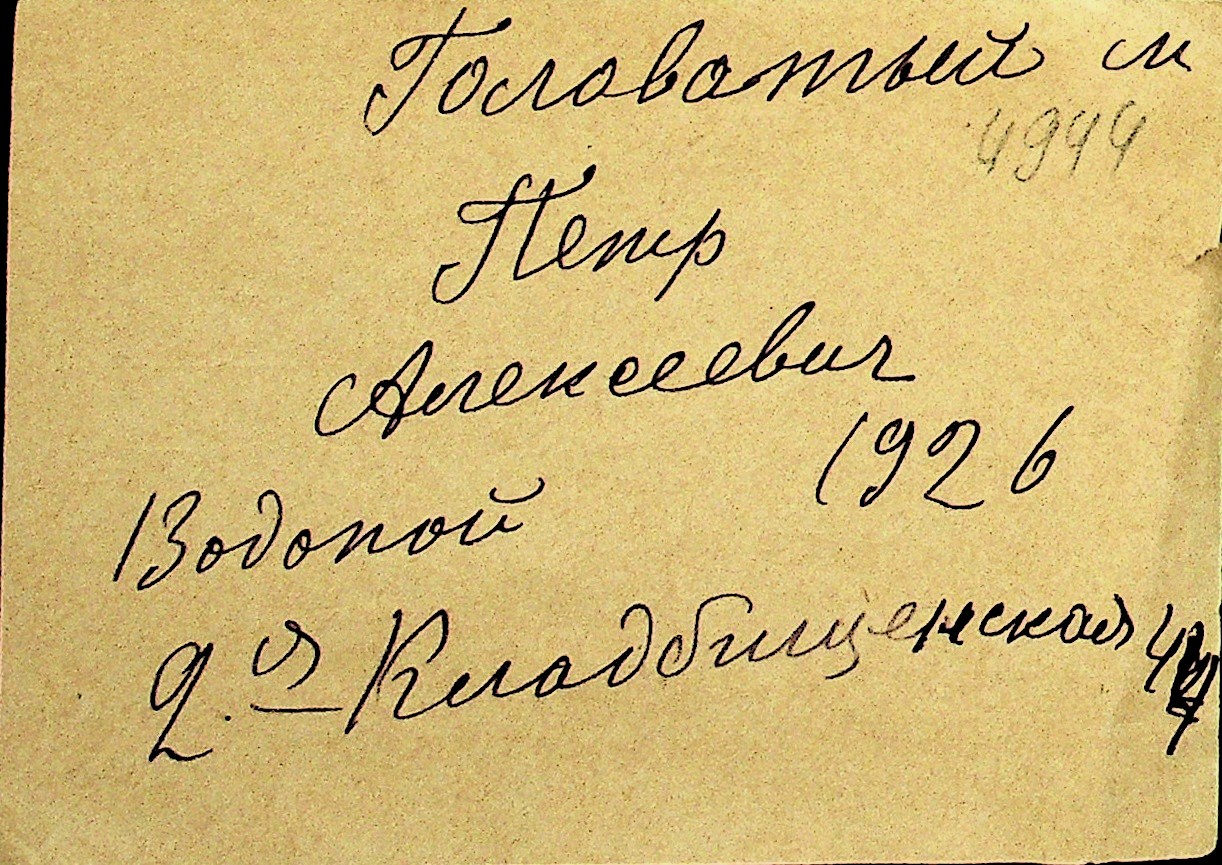 Головатый м
4944
Петр
Алексеевич
1926
Водопой
2.я Кладбищенская